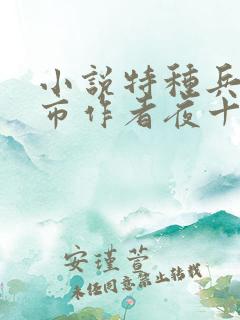 小說特種兵
市作者夜十
安瑾萱
未经同意禁止转载